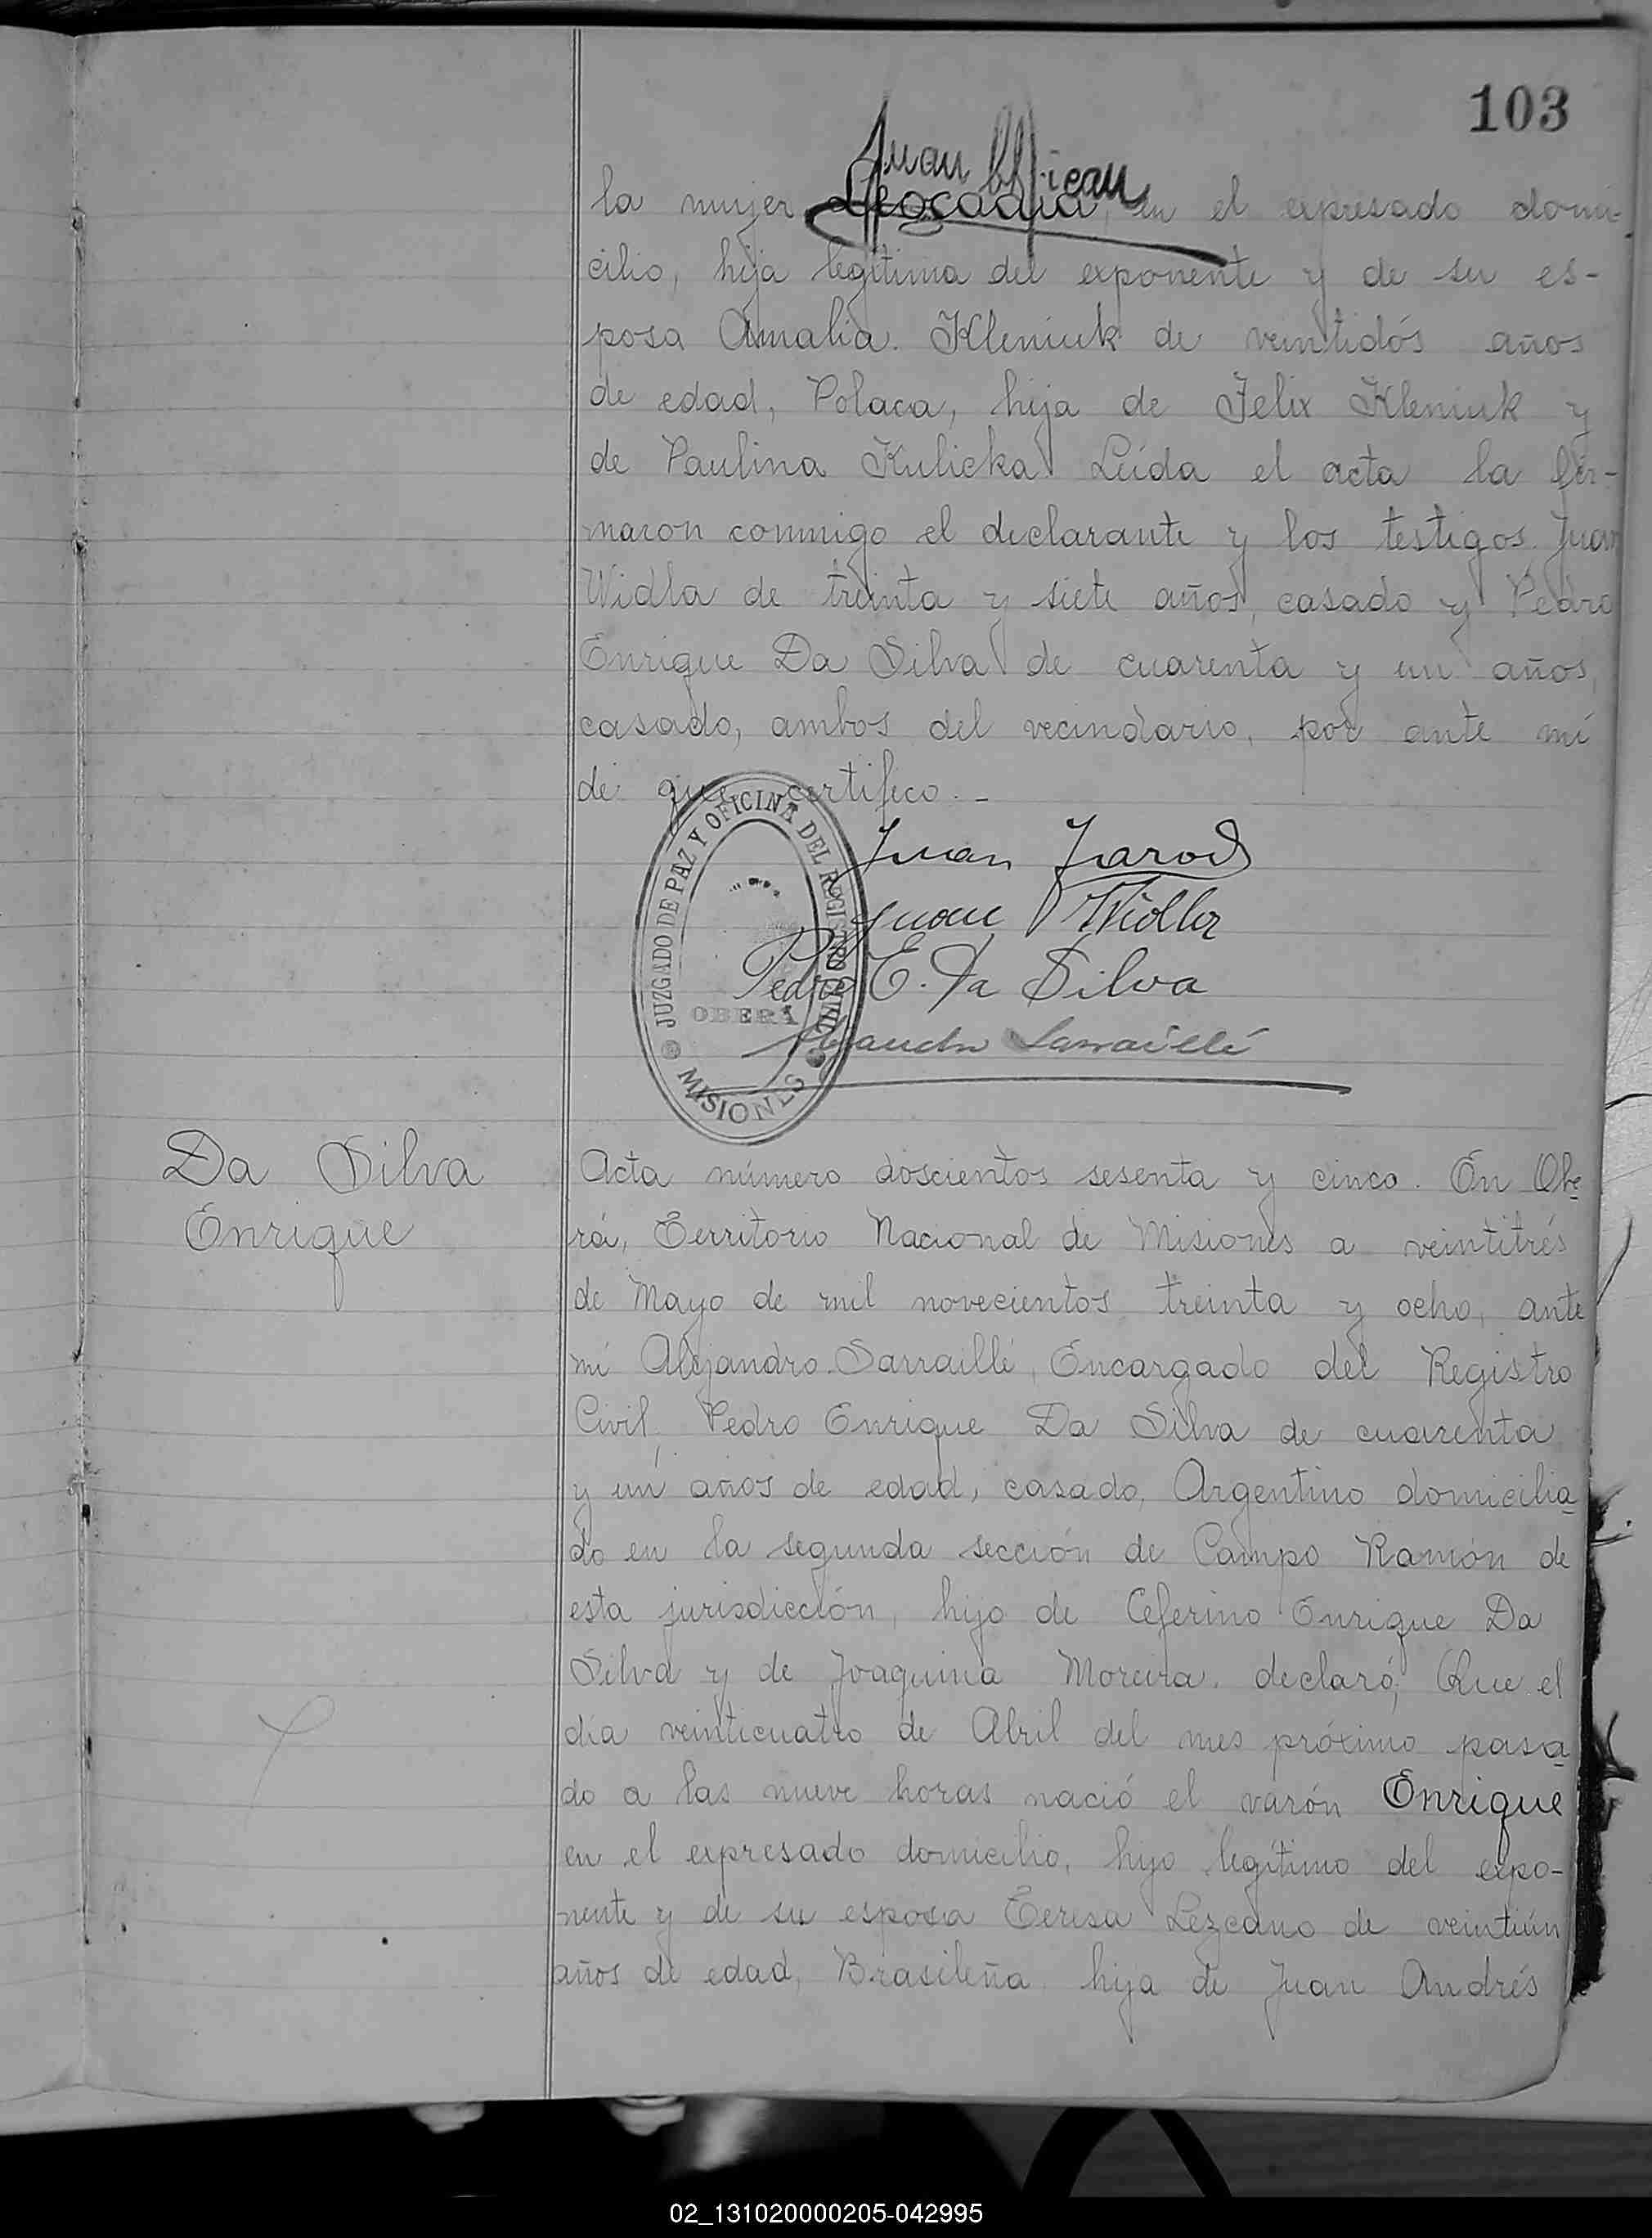 103
Juan
la mujer Leocadia, en el expresado domi-
cilio, hija legítima del exponente y de su es-
posa Amalia Kleniuk de veintidós años
de edad, Polaca, hija de Felix Kleniuk y
de Paulina Kulicka. Leída el acta la fir-
maron conmigo el declarante y los testigos Juan
Widla de treinta y siete años, casado y Pedro
Enrique Da Silva de cuarenta y un años,
casado, ambos del vecindario, por ante mí
de que certifico.-
JUZGADO DE PAZ Y OFICINA DEL REGISTRO CIVIL
OBERÁ
MISIONES
Juan Jarod
Juan Widla
Pedro E. Da Silva
Alejandro Sarraillé
Da Silva
Enrique
Acta número doscientos sesenta y cinco. En Obe
rá, Territorio Nacional de Misiones a veintitrés
de Mayo de mil novecientos treinta y ocho, ante
mí Alejandro Sarraillé, Encargado del Registro
Civil, Pedro Enrique Da Silva de cuarenta
y un años de edad, casado, Argentino domicilia
do en la segunda sección de Campo Ramón de
esta jurisdicción, hijo de Ceferino Enrique Da
Silva y de Joaquina Moreira, declaró; Que el
día veinticuatro de Abril del mes próximo pasa
do a las nueve horas nació el varón Enrique
en el expresado domicilio, hijo legítimo del expo-
nente y de su esposa Teresa Lezcano de veintiún
años de edad, Brasileña hija de Juan Andrés
02_131020000205-042995